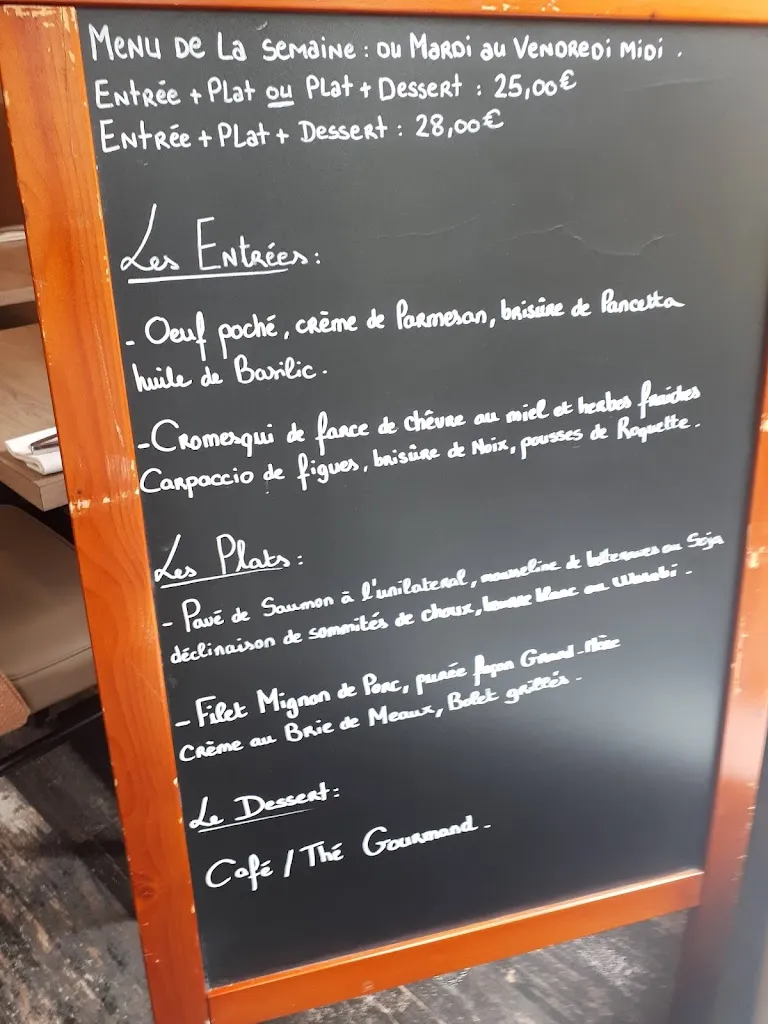 Menu de La semaine : du Mardi au Vendredi midi .
Entrée + Plat ou Plat + Dessert : 25,00€
Entrée + Plat + Dessert : 28,00€
Les Entrées :
- Oeuf poché, crème de Parmesan, brisure de Pancetta
huile de Basilic .
- Cromesqui de farce de chèvre au miel et herbes fraiches
Carpaccio de figues, brisure de Noix, pousses de Roquette .
Les Plats :
- Pavé de Saumon à l'unilateral, mousseline de betteraves au Soja
déclinaison de sommités de choux, beurre blanc au Wasabi .
- Filet Mignon de Porc, purée façon Grand-Mère
Crème au Brie de Meaux, Bolet grillés .
Le Dessert :
Café / Thé Gourmand .